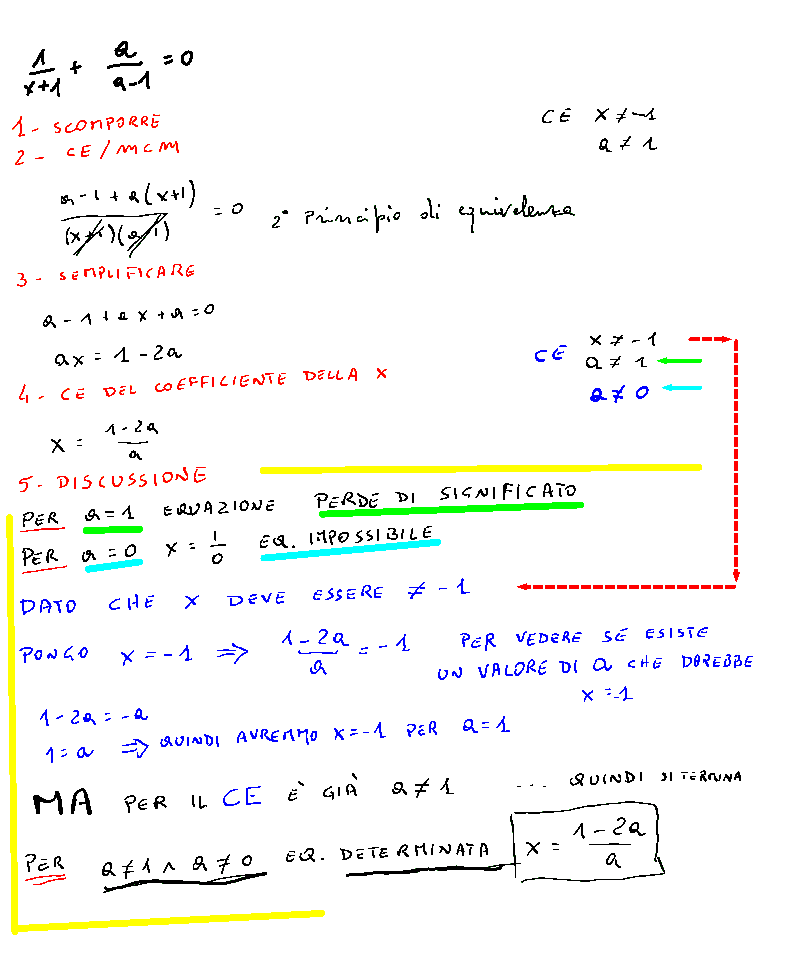 1/x+1 + a/a-1 = 0
CE x ≠ -1
a ≠ 1
1- SCOMPORRE
2- CE/MCM
a-1+a(x+1)/(x+1)(a-1) = 0 2° Principio di equivalenza
3- SEMPLIFICARE
a-1+ax+a=0
ax = 1-2a
CE x ≠ -1
a ≠ 1
a ≠ 0
4- CE DEL COEFFICIENTE DELLA X
x = 1-2a/a
5- DISCUSSIONE
PER a=1 EQUAZIONE PERDE DI SIGNIFICATO
PER a=0 x = 1/0 EQ. IMPOSSIBILE
DATO CHE X DEVE ESSERE ≠ -1
PONGO x=-1 ⇒ 1-2a/a = -1 PER VEDERE SE ESISTE
UN VALORE DI a CHE DAREBBE
x=-1
1-2a=-a
1=a ⇒ QUINDI AVREMMO X=-1 PER a=1
MA PER IL CE È GIÀ a≠1 ... QUINDI SI TERMINA
PER a≠1 ∧ a≠0 EQ. DETERMINATA x = 1-2a/a